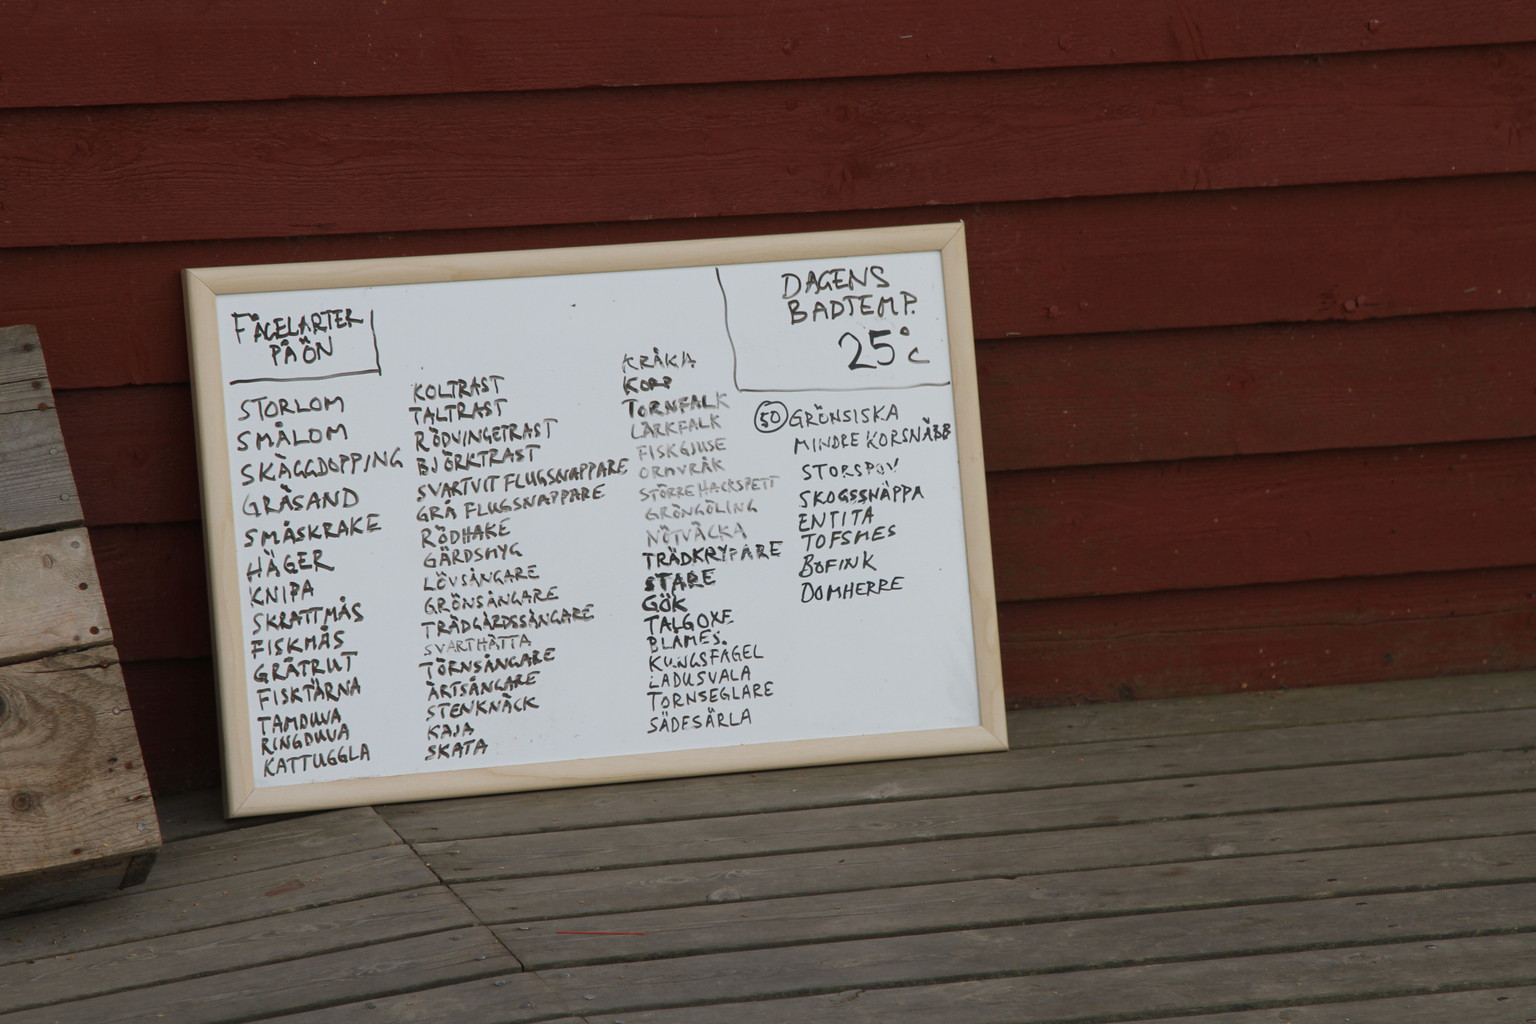 FÅGELARTER
PÅ ÖN
STORLOM
SMÅLOM
SKÄGGDOPPING
GRÄSAND
SMÅSKRAKE
HÄGER
KNIPA
SKRATTMÅS
FISKMÅS
GRÅTRUT
FISKTÄRNA
TAMDUVA
RINGDUVA
KATTUGGLA
KOLTRAST
TALTRAST
RÖDVINGETRAST
BJÖRKTRAST
SVARTVIT FLUGSNAPPARE
GRÅ FLUGSNAPPARE
RÖDHAKE
GÄRDSMYG
LÖVSÅNGARE
GRÖNSÅNGARE
TRÄDGÅRDSSÅNGARE
SVARTHÄTTA
TÖRNSÅNGARE
ÄRTSÅNGARE
STENKNÄCK
KAJA
SKATA
KRÅKA
KORP
TORNFALK
LÄRKFALK
FISKGJUSE
ORMVRÅK
STÖRRE HACKSPETT
GRÖNGÖLING
NÖTVÄCKA
TRÄDKRYPARE
STARE
GÖK
TALGOXE
BLÅMES.
KUNGSFÅGEL
LADUSVALA
TORNSEGLARE
SÄDESÄRLA
DAGENS
BADTEMP.
25°C
50 GRÖNSISKA
MINDRE KORSNÄBB
STORSPOV
SKOGSSNÄPPA
ENTITA
TOFSMES
BOFINK
DOMHERRE